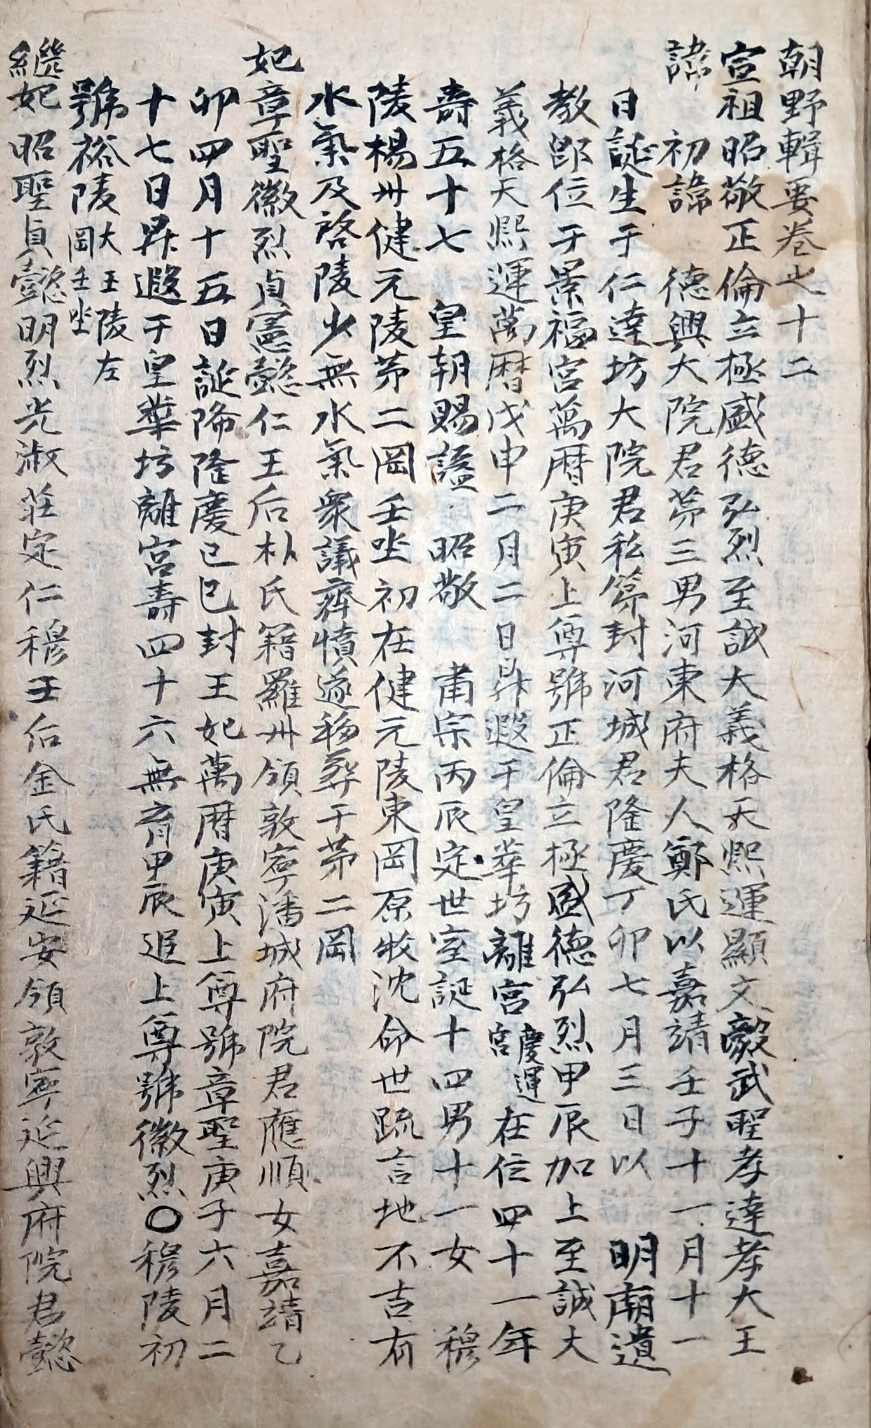 朝野輯要卷之十二
宣祖昭敬正倫立極盛德弘烈至誠大義格天熙運顯文毅武聖孝達孝大王
諱 初諱 德興大院君第三男河東府夫人鄭氏以嘉靖壬子十一月十一
日誕生于仁達坊大院君私第封河城君隆慶丁卯七月三日以 明廟遺
教卽位于景福宮萬曆庚寅上尊號正倫立極盛德弘烈甲辰加上至誠大
義格天熙運萬曆戊申二月二日昇遐于皇華坊離宮慶運宮在位四十一年
壽五十七 皇朝賜諡 昭敬 肅宗丙辰定世室誕十四男十一女 穆
陵楊州健元陵第二岡壬坐初在健元陵東岡原牧沈命世疏言地不吉有
水氣及啓陵少無水氣衆議齊憤遂移葬于第二岡
妃章聖徽烈貞憲懿仁王后朴氏籍羅州領敦寧潘城府院君應順女嘉靖乙
卯四月十五日誕降隆慶己巳封王妃萬曆庚寅上尊號章聖庚子六月二
十七日昇遐于皇華坊離宮壽四十六無育甲辰追上尊號徽烈○穆陵初
號裕陵大王陵左岡壬坐
繼妃昭聖貞懿明烈光淑莊定仁穆王后金氏籍延安領敦寧延興府院君懿